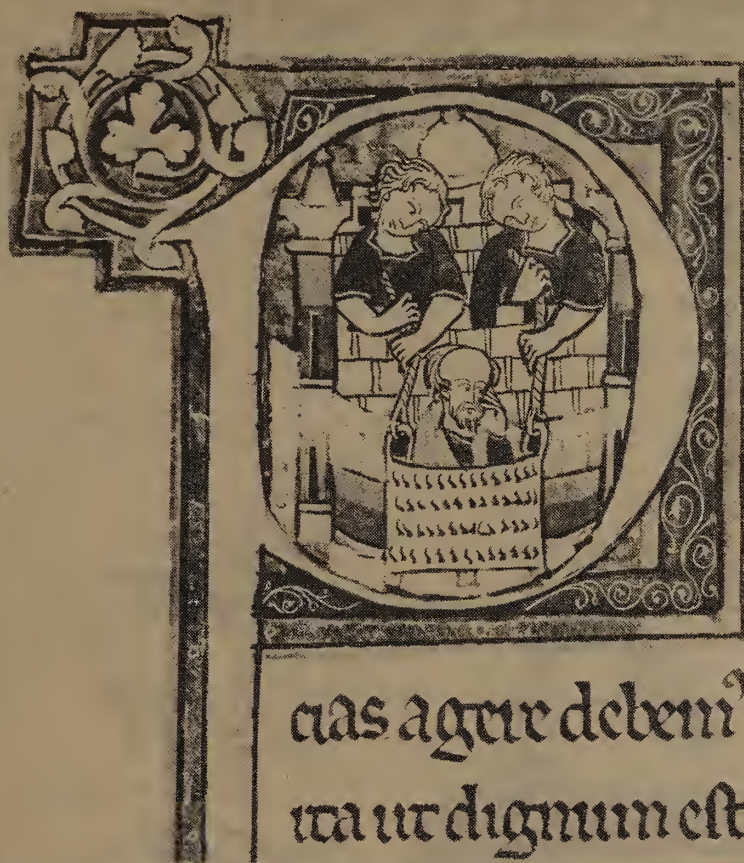 P
cias agere debem⁹
ita ut dignum est